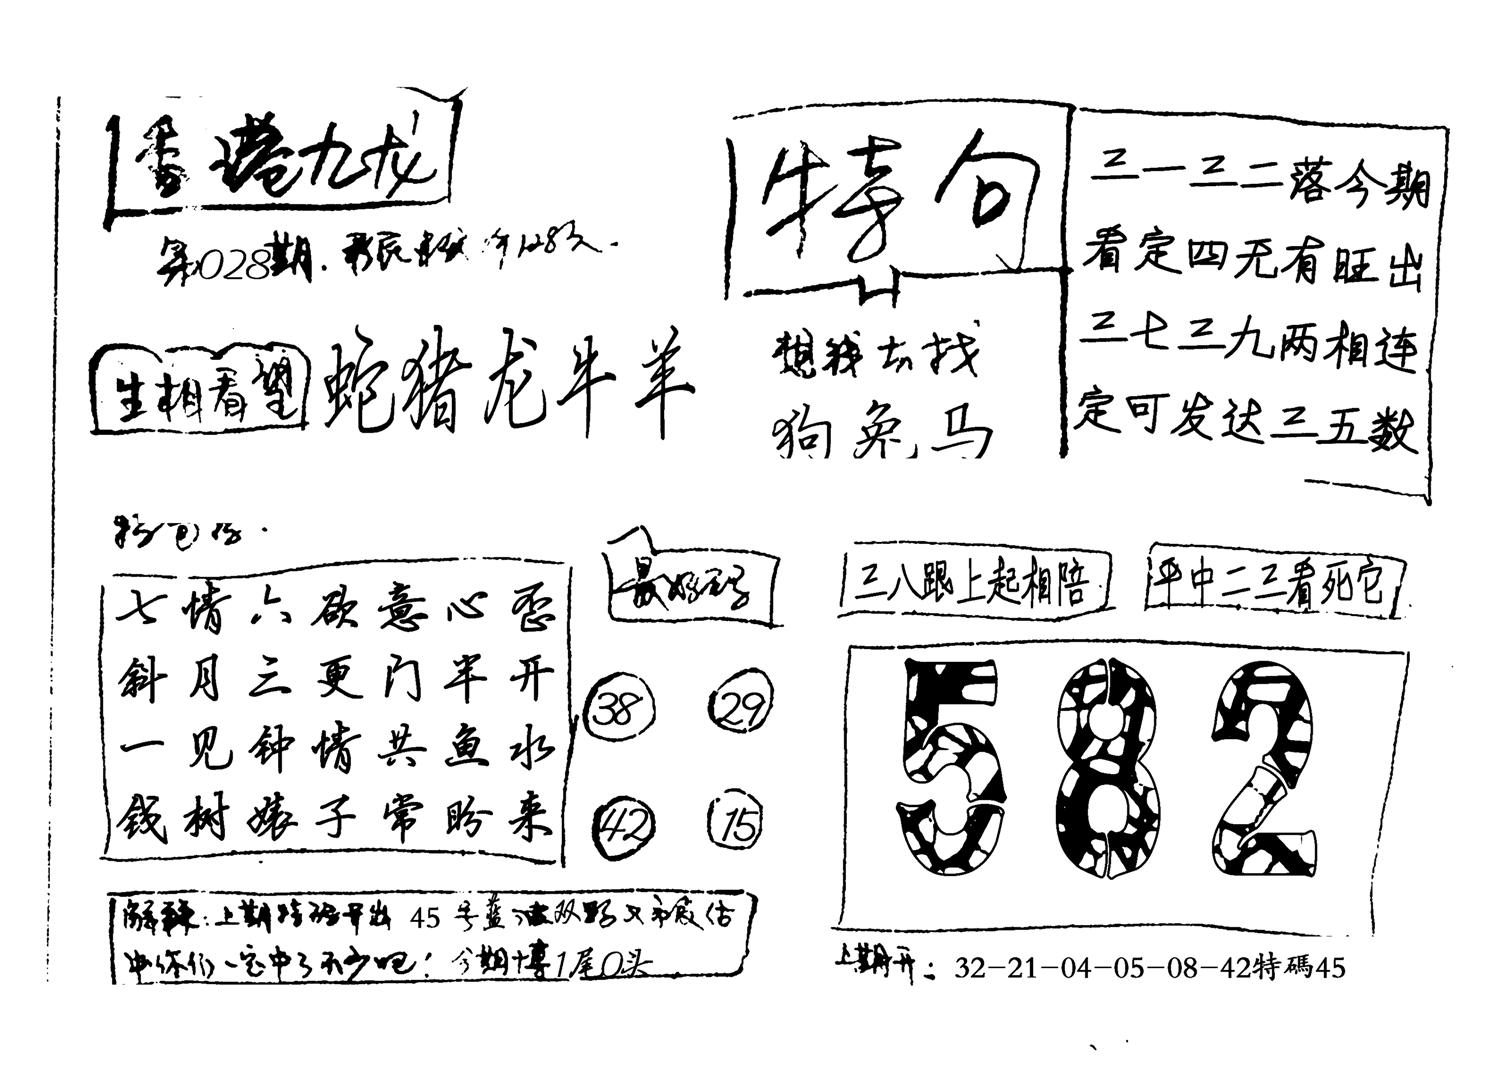 香港九龙
第028期.
特句
三一三二落今期
看定四无有旺出
三七三九两相连
定可发达三五数
生相看望
蛇猪龙牛羊
想钱去找
狗兔马
七情六欲意心歪
斜月三更门半开
一见钟情共鱼水
钱树婊子常盼来
最好码
38 29
42 15
三八跟上起相陪
平中二三看死它
582
解释：上期特码开出 45 号蓝波双
你们一定中了不少吧！今期博1尾0头
上期开：32-21-04-05-08-42特碼45